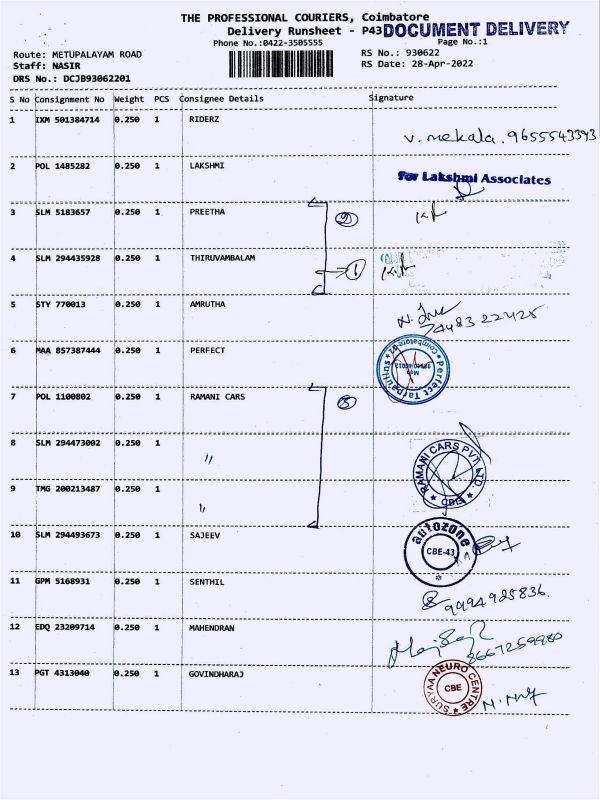 THE PROFESSIONAL COURIERS, Coimbatore
Delivery Runsheet - P43 DOCUMENT DELIVERY
Phone No.:0422-3505555 Page No.:1
Route: METUPALAYAM ROAD RS No.: 930622
Staff: NASIR RS Date: 28-Apr-2022
DRS No.: DCJB93062201
S No Consignment No Weight PCS Consignee Details Signature
1 IXM 501384714 0.250 1 RIDERZ
V. mekala. 9655543393
2 POL 1485282 0.250 1 LAKSHMI
For Lakshmi Associates
3 SLM 5183657 0.250 1 PREETHA
2
4 SLM 294435928 0.250 1 THIRUVAMBALAM
1
5 STY 770013 0.250 1 AMRUTHA
7448322425
6 MAA 857387444 0.250 1 PERFECT
Perfect Tarpaulins
Coimatore
7 POL 1100802 0.250 1 RAMANI CARS
8 SLM 294473002 0.250 1 "
RAMANI CARS PVT. LTD.
CBE
9 TMG 200213487 0.250 1 "
10 SLM 294493673 0.250 1 SAJEEV
autozone
CBE-43
11 GPM 5168931 0.250 1 SENTHIL
9994925836.
12 EDQ 23209714 0.250 1 MAHENDRAN
8667259980
13 PGT 4313040 0.250 1 GOVINDHARAJ
SURYAA NEURO CENTRE
CBE